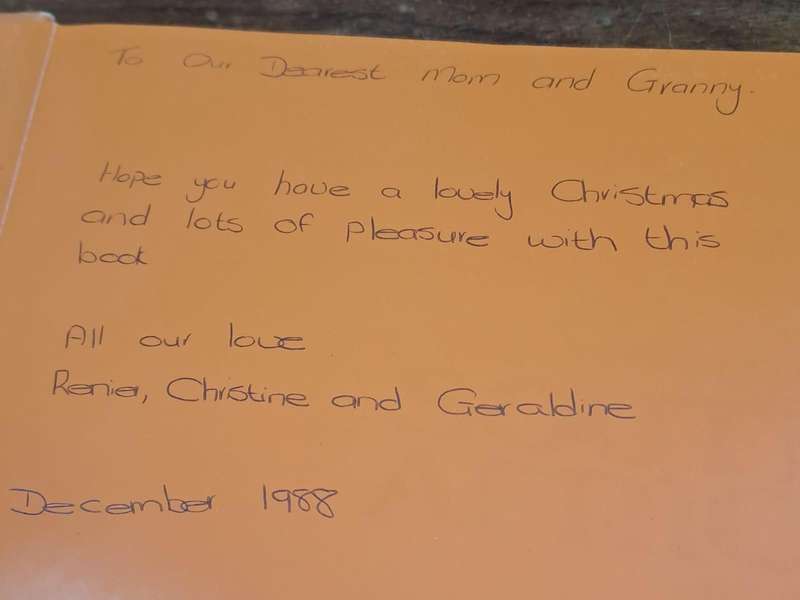 To Our Dearest Mom and Granny.
Hope you have a lovely Christmas
and lots of pleasure with this
book
All our love
Renier, Christine and Geraldine
December 1988